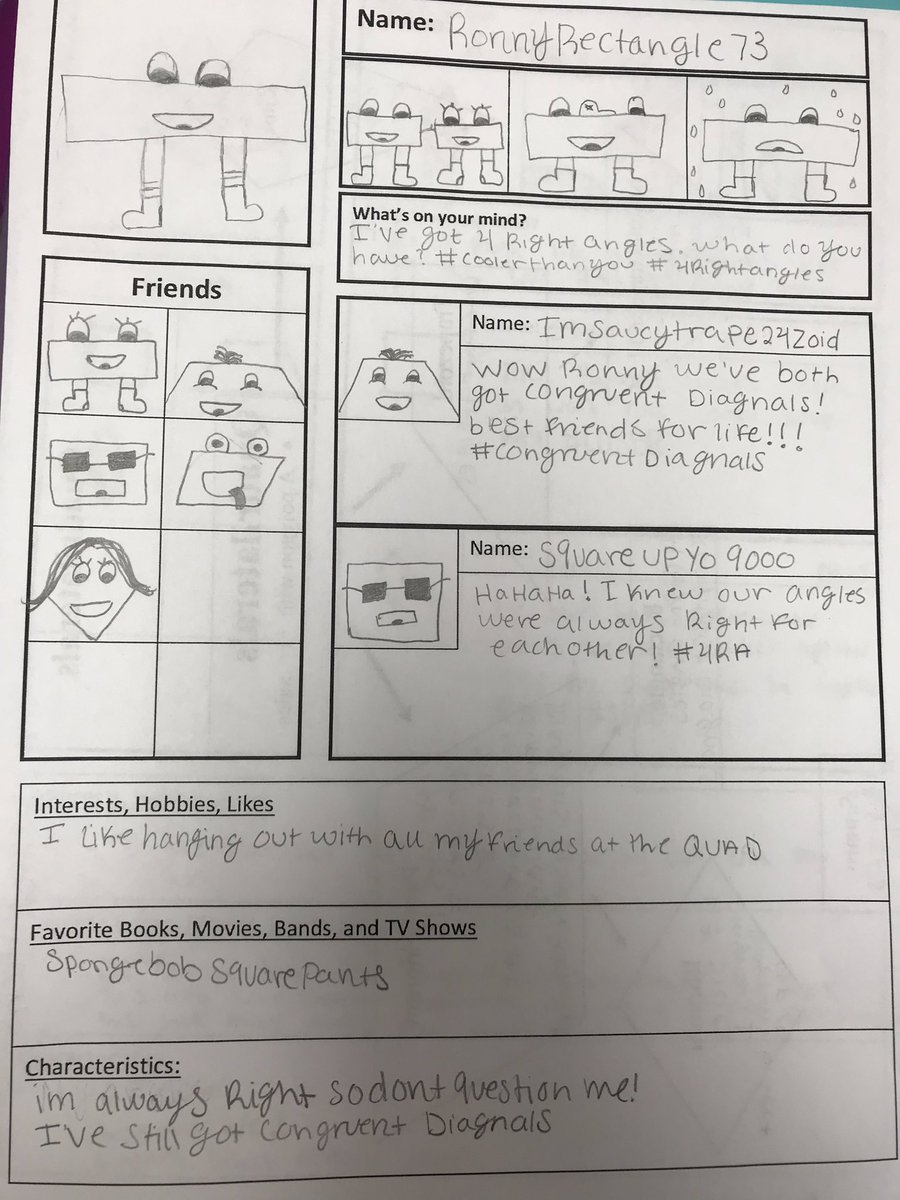 Name: RonnyRectangle73
What's on your mind?
I've got 4 Right angles. What do you
have? #coolerthanyou #4Rightangles
Friends
Name: Imsaucytrape24Zoid
Wow Ronny we've both
got congruent Diagnals!
best friends for life!!!
#congruentDiagnals
Name: SquareUpYo9000
HaHaHa! I knew our angles
were always Right for
each other! #4RA
Interests, Hobbies, Likes
I like hanging out with all my friends at the QUAD
Favorite Books, Movies, Bands, and TV Shows
Spongebob Squarepants
Characteristics:
im always Right so dont question me!
I've still got congruent Diagnals